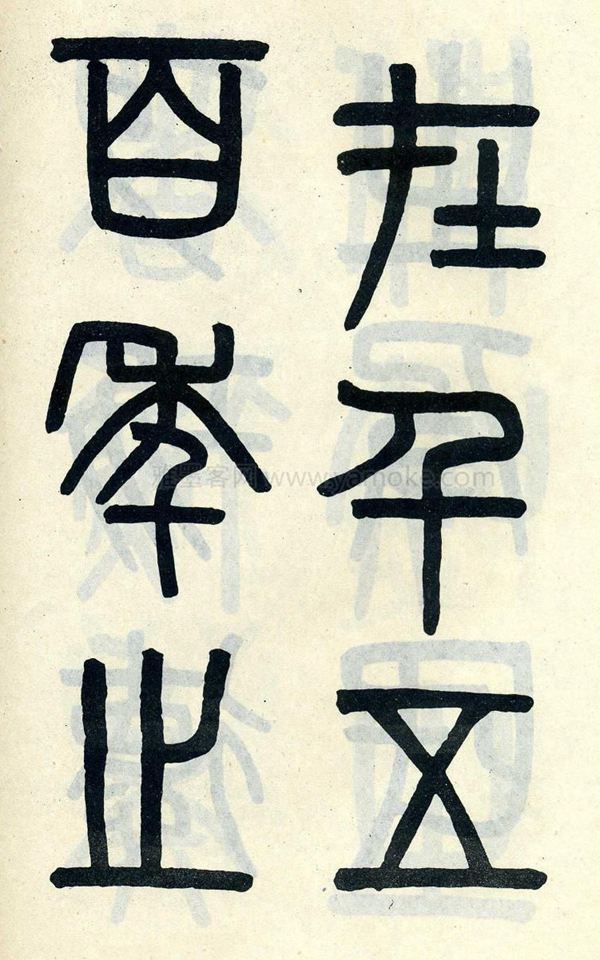 在千五
百年之
雅墨客网 www.yamoke.com